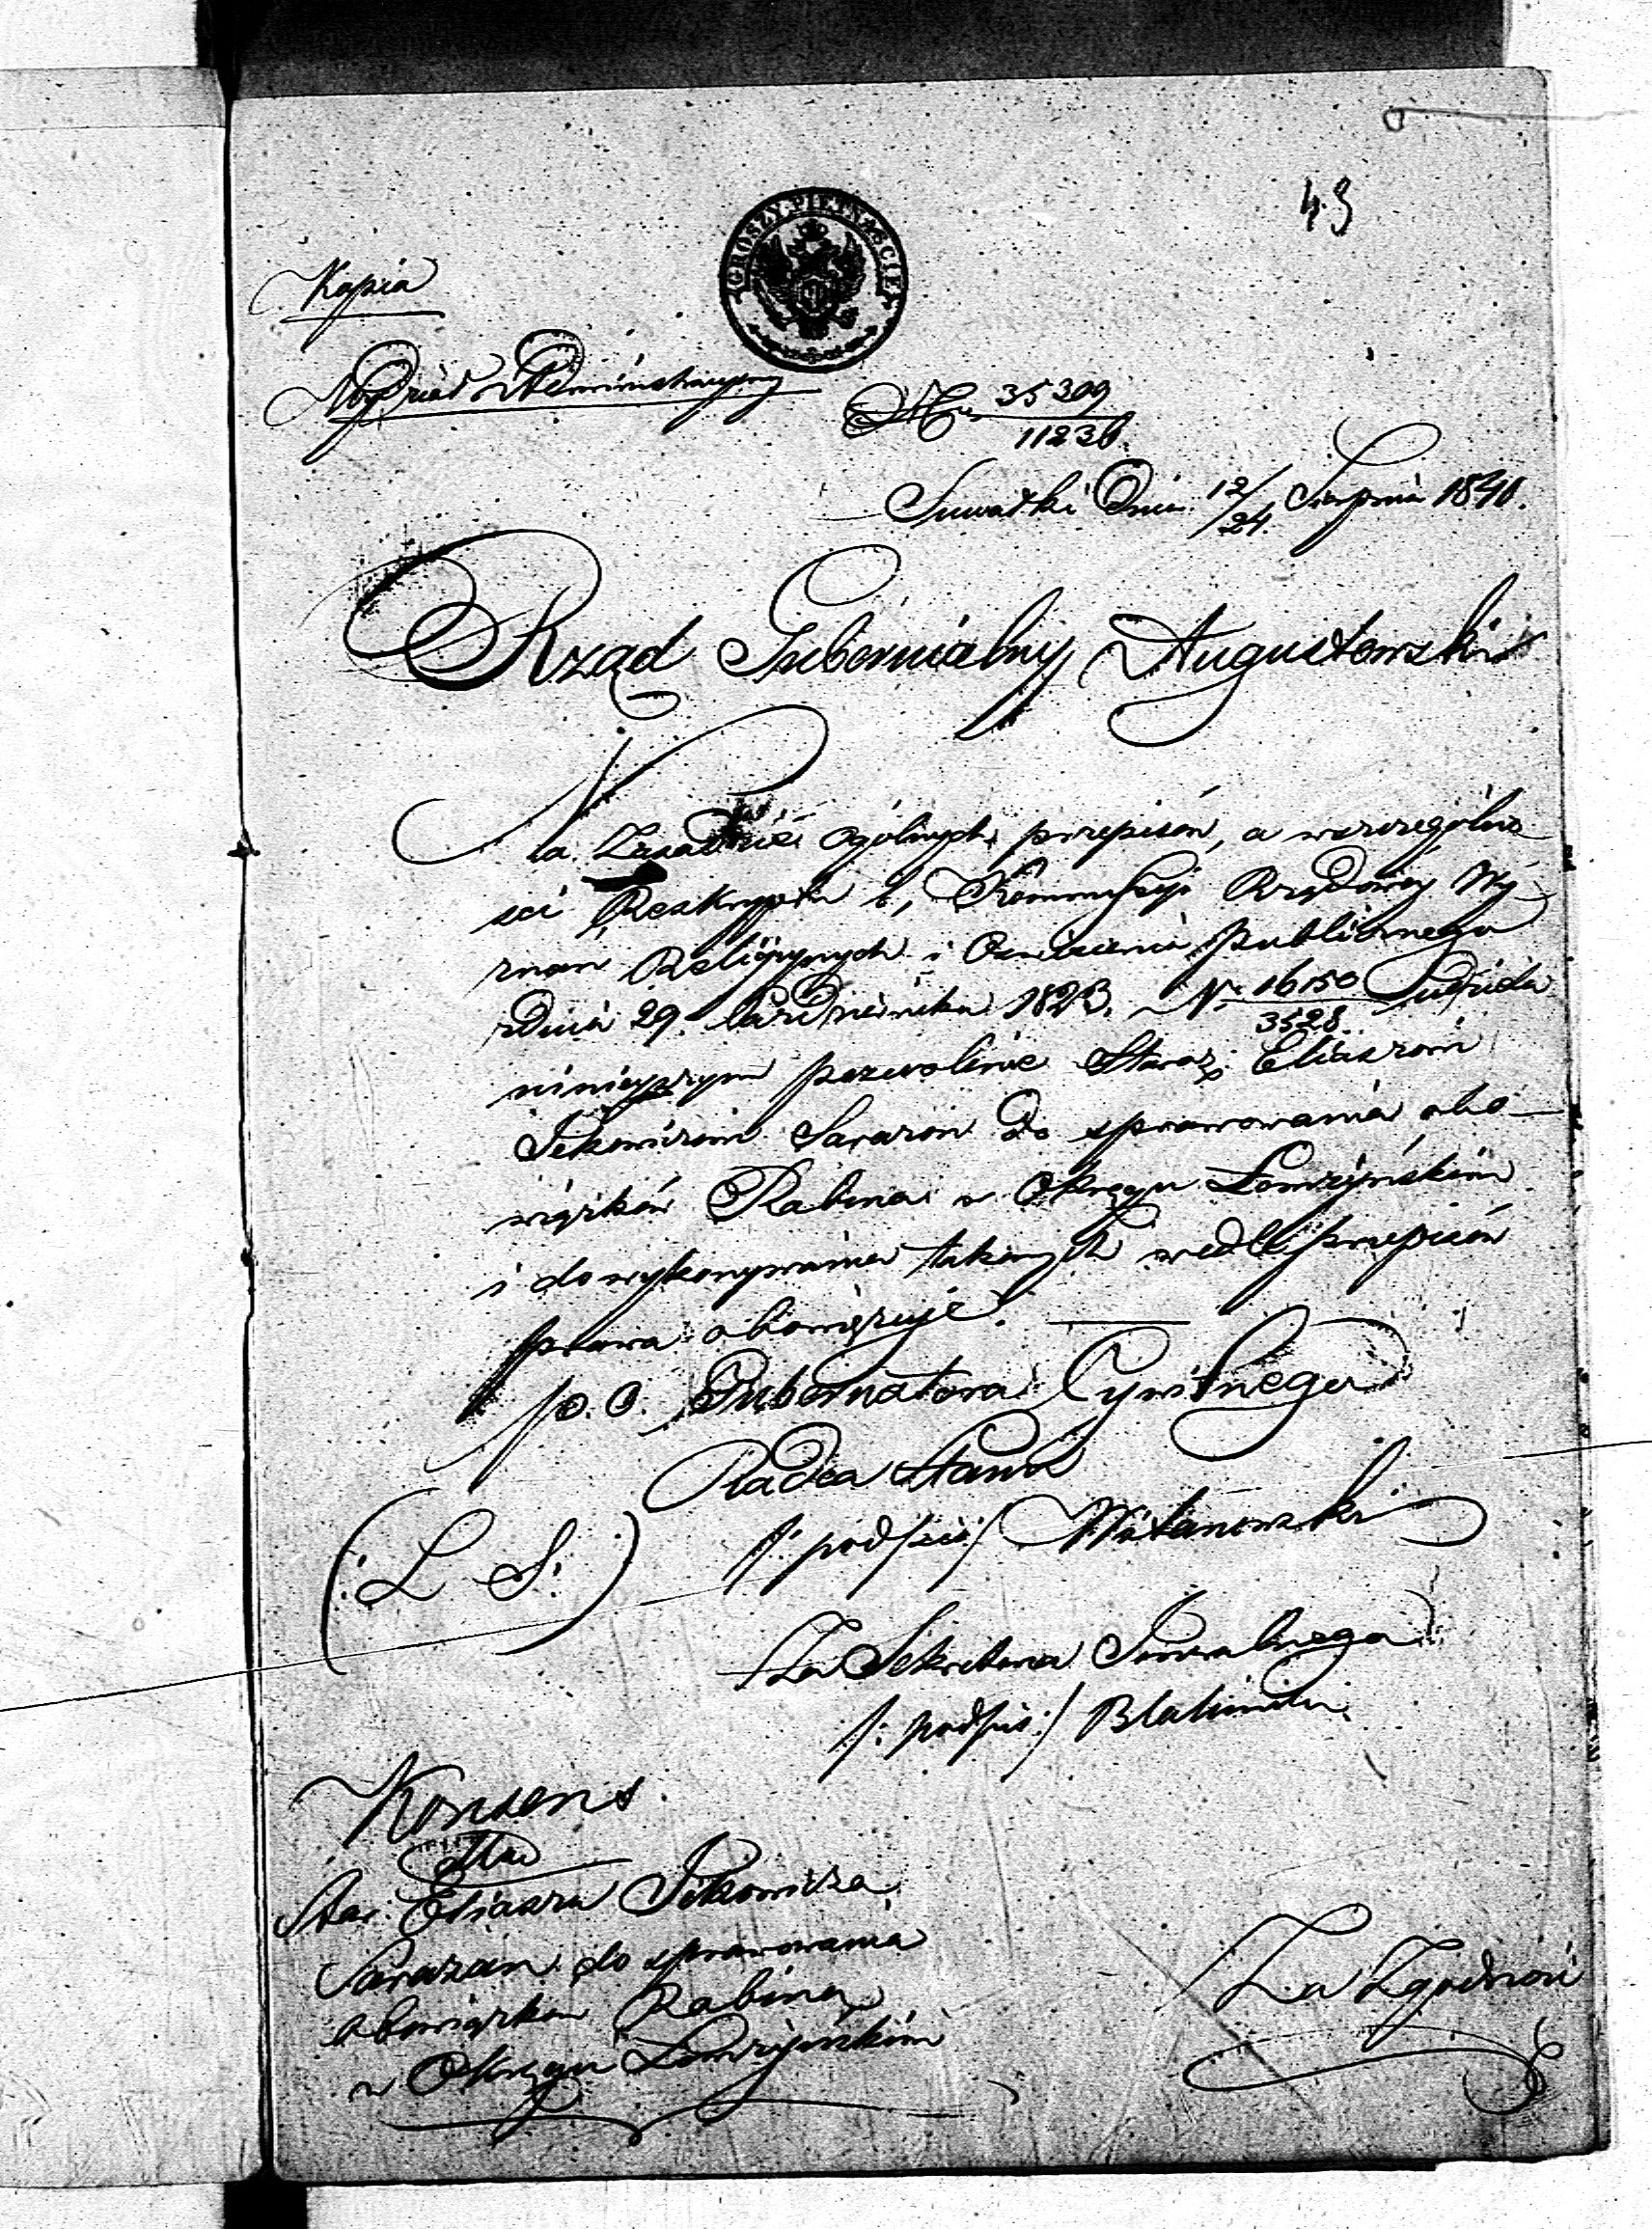 43
GROSZY PIĘTNAŚCIE
Kopia
Wydział Administracyjny
N. 35309/11236
Suwałki Dnia 12/24 Sierpnia 1840.
Rząd Gubernialny Augustowski
Na Zasadzie ogólnych przepisów, a wszczególno
ści Reskryptu b, Kommissyi Rządowey Wy-
znań Religijnych i Oświecenia Publicznego
zdnia 29. Października 1823. N. 16150/3528 Udziela
ninieyszym pozwolenie Staroz: Eliaszowi
do sprawowania obo-
wiązków Rabina w Okręgu Łomżyńskim
i do wykonywania takowych wedle przepisów
prawa obowiązuje.
p. O. Gubernatora Cywilnego
Radca Stanu
(: L. S. :)
/: podpis :/
Za Sekretarza Jeneralnego
/: podpis :/
Konsens
dla
Star: Eliasza
do sprawowania
obowiązków Rabina
w Okręgu Łomżyńskim
Za Zgodność